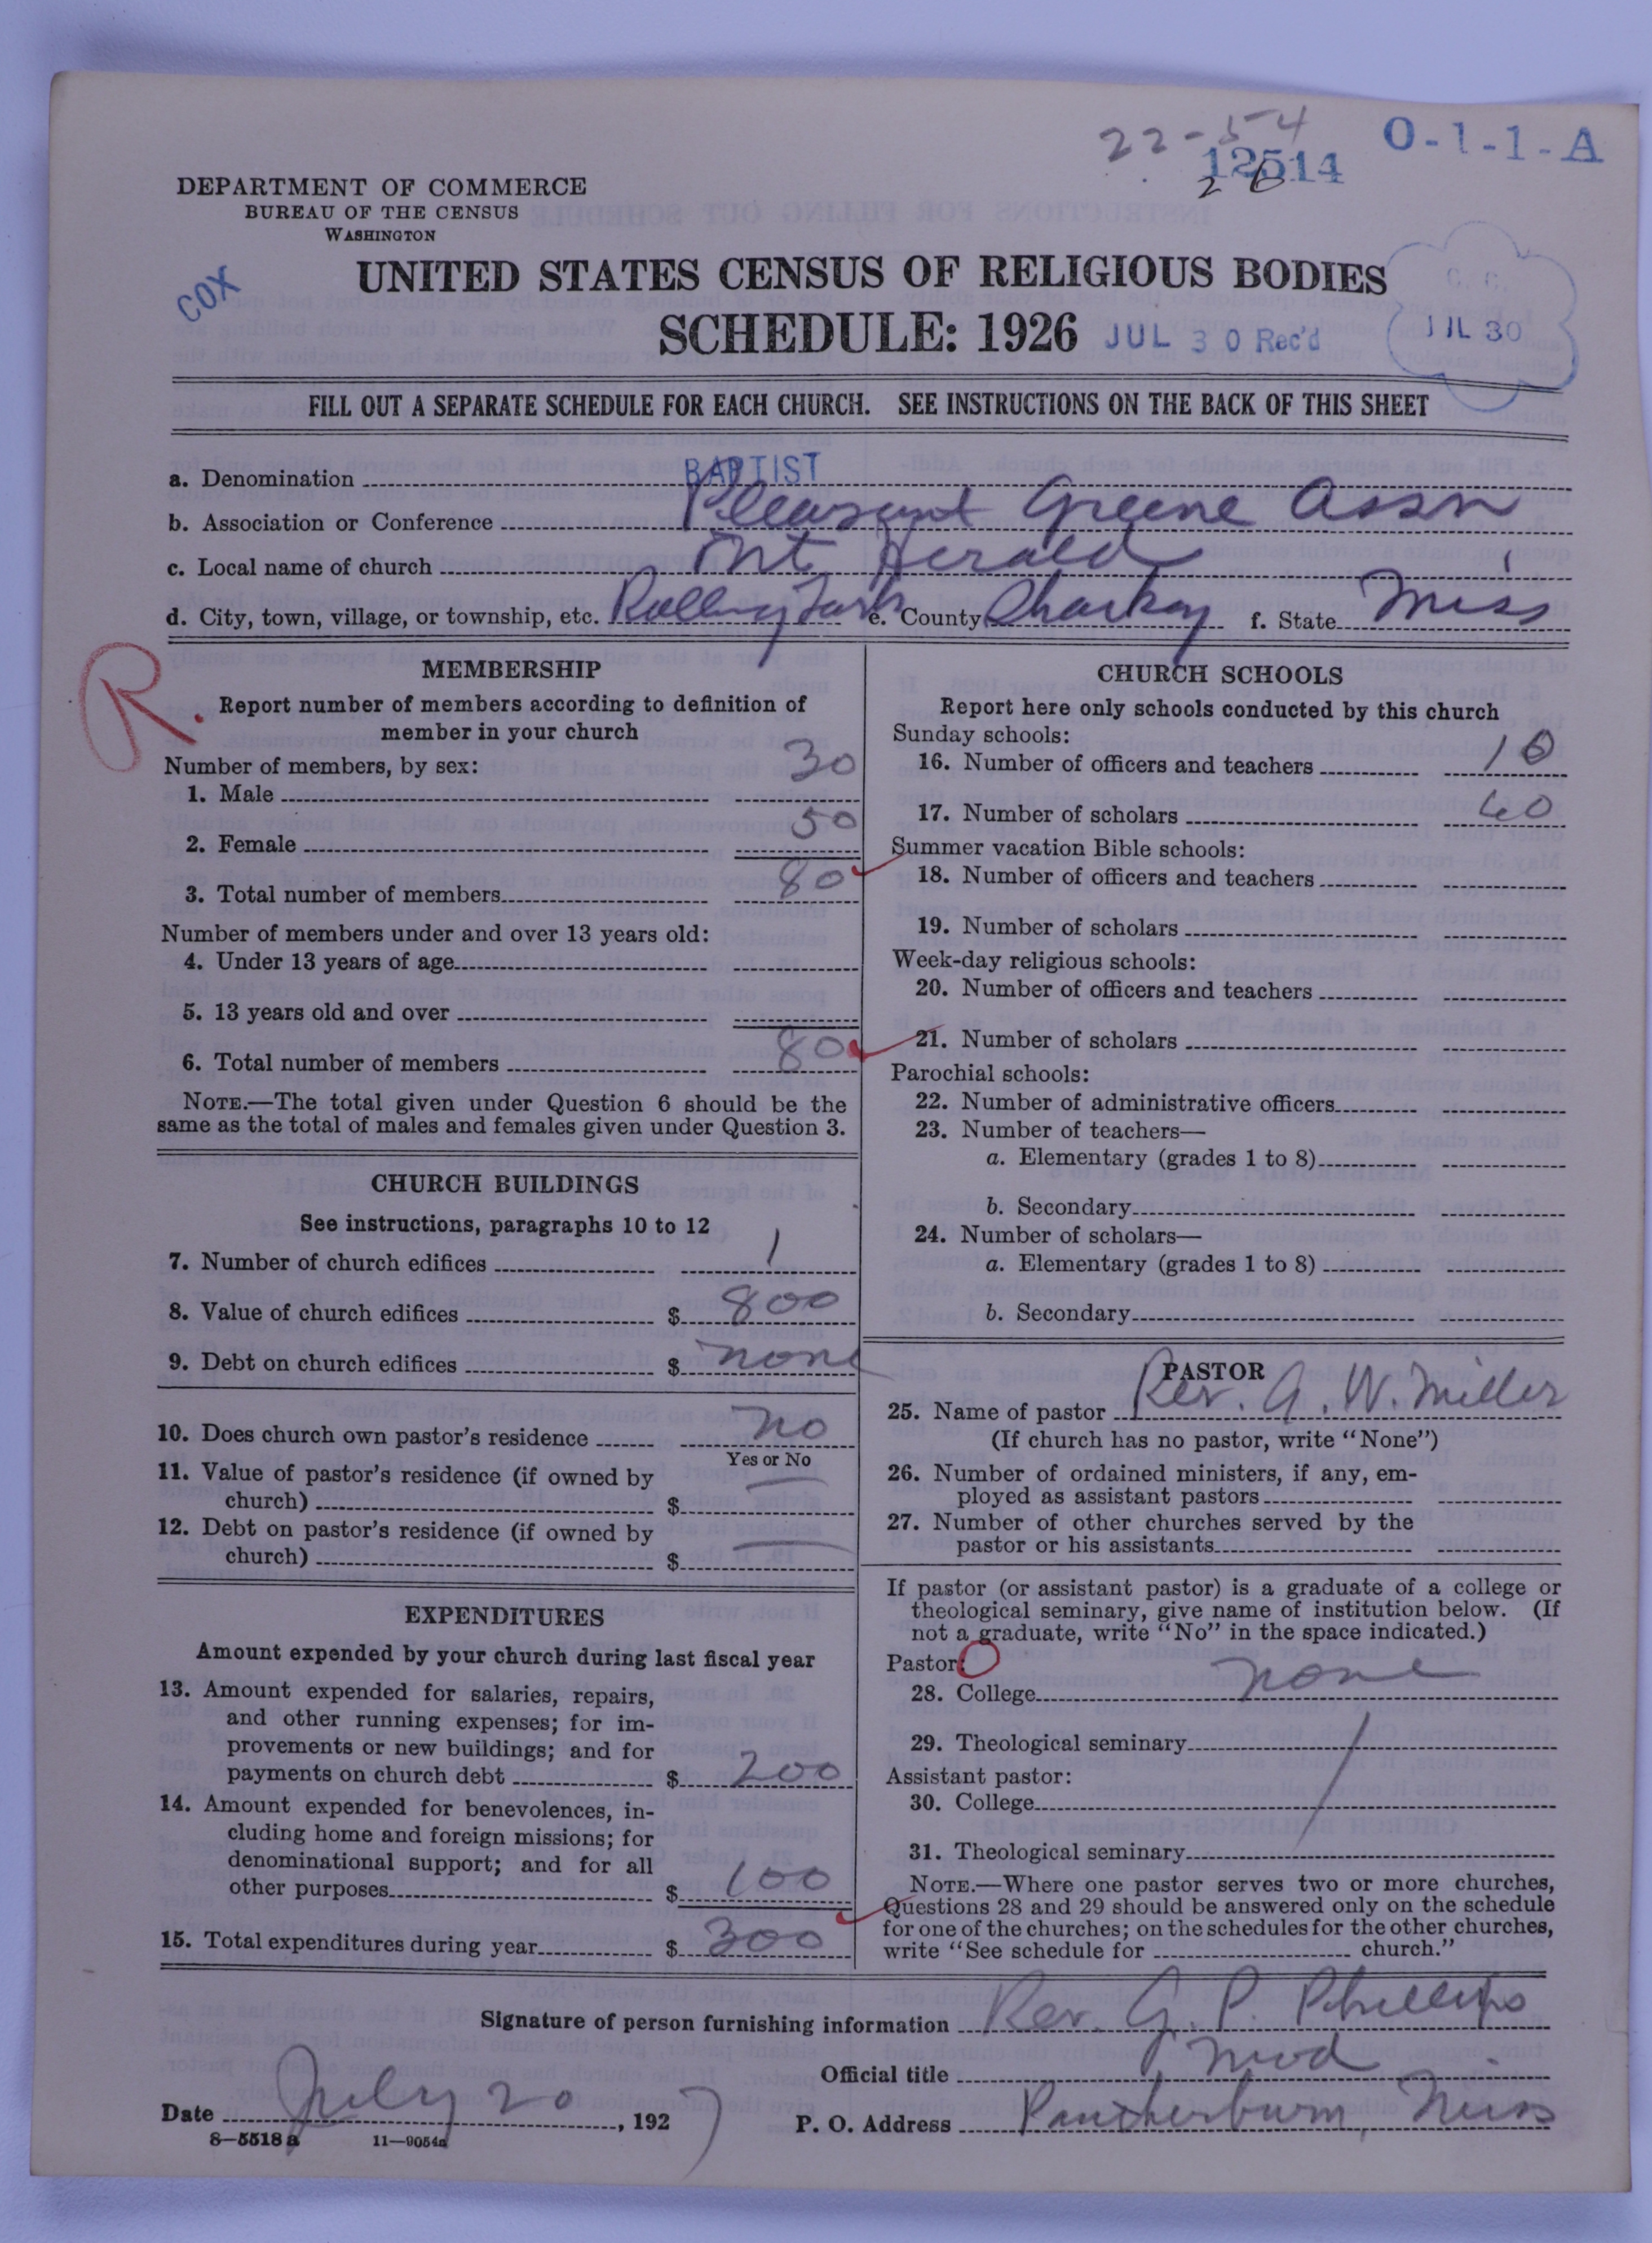 22-54
12514
O-1-1-A
DEPARTMENT OF COMMERCE
BUREAU OF THE CENSUS
WASHINGTON
COX
UNITED STATES CENSUS OF RELIGIOUS BODIES
SCHEDULE: 1926
JUL 30 Rec'd
JUL 30
FILL OUT A SEPARATE SCHEDULE FOR EACH CHURCH. SEE INSTRUCTIONS ON THE BACK OF THIS SHEET
a. Denomination BAPTIST
b. Association or Conference Pleasant Greene Assn
c. Local name of church Mt Herald
d. City, town, village, or township, etc. Rolling Fork e. County Sharkey f. State Miss
R.
MEMBERSHIP
Report number of members according to definition of
member in your church
Number of members, by sex:
1. Male 30
2. Female 50
3. Total number of members 80
Number of members under and over 13 years old:
4. Under 13 years of age
5. 13 years old and over
6. Total number of members 80
NOTE.—The total given under Question 6 should be the
same as the total of males and females given under Question 3.
CHURCH BUILDINGS
See instructions, paragraphs 10 to 12
7. Number of church edifices 1
8. Value of church edifices $ 800
9. Debt on church edifices $ none
10. Does church own pastor's residence no
Yes or No
11. Value of pastor's residence (if owned by
church) $
12. Debt on pastor's residence (if owned by
church) $
EXPENDITURES
Amount expended by your church during last fiscal year
13. Amount expended for salaries, repairs,
and other running expenses; for im-
provements or new buildings; and for
payments on church debt $ 200
14. Amount expended for benevolences, in-
cluding home and foreign missions; for
denominational support; and for all
other purposes $ 100
15. Total expenditures during year $ 300
CHURCH SCHOOLS
Report here only schools conducted by this church
Sunday schools:
16. Number of officers and teachers 10
17. Number of scholars 40
Summer vacation Bible schools:
18. Number of officers and teachers
19. Number of scholars
Week-day religious schools:
20. Number of officers and teachers
21. Number of scholars
Parochial schools:
22. Number of administrative officers
23. Number of teachers—
a. Elementary (grades 1 to 8)
b. Secondary
24. Number of scholars—
a. Elementary (grades 1 to 8)
b. Secondary
PASTOR
25. Name of pastor Rev. G. W. Miller
(If church has no pastor, write "None")
26. Number of ordained ministers, if any, em-
ployed as assistant pastors
27. Number of other churches served by the
pastor or his assistants
If pastor (or assistant pastor) is a graduate of a college or
theological seminary, give name of institution below. (If
not a graduate, write "No" in the space indicated.)
Pastor:
28. College none
29. Theological seminary
Assistant pastor:
30. College
31. Theological seminary
NOTE.—Where one pastor serves two or more churches,
Questions 28 and 29 should be answered only on the schedule
for one of the churches; on the schedules for the other churches,
write "See schedule for church."
Signature of person furnishing information Rev. G. P. Phillips
Official title Mod
Date July 20, 1927 P. O. Address Pantherburn, Miss
8—5518a 11—9054a